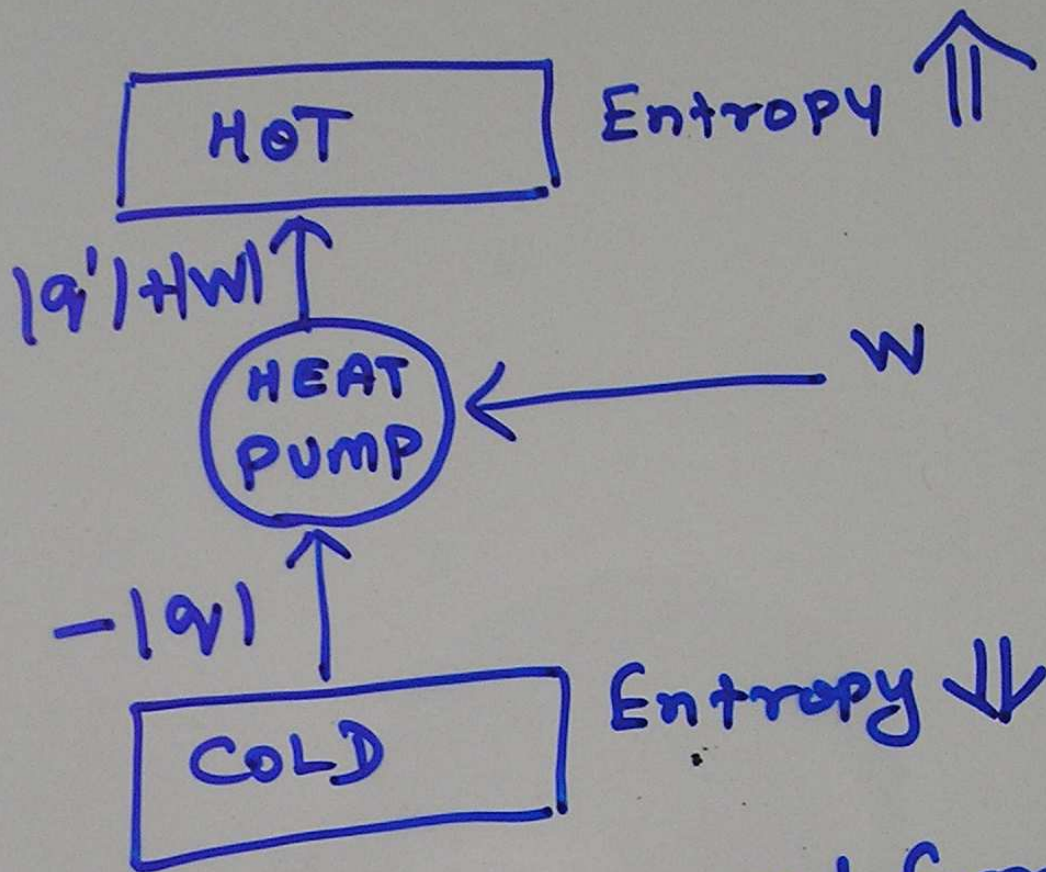 HOT
Entropy ⇑
|q'|+|W|
HEAT
PUMP
W
-|q|
COLD
Entropy ⇓